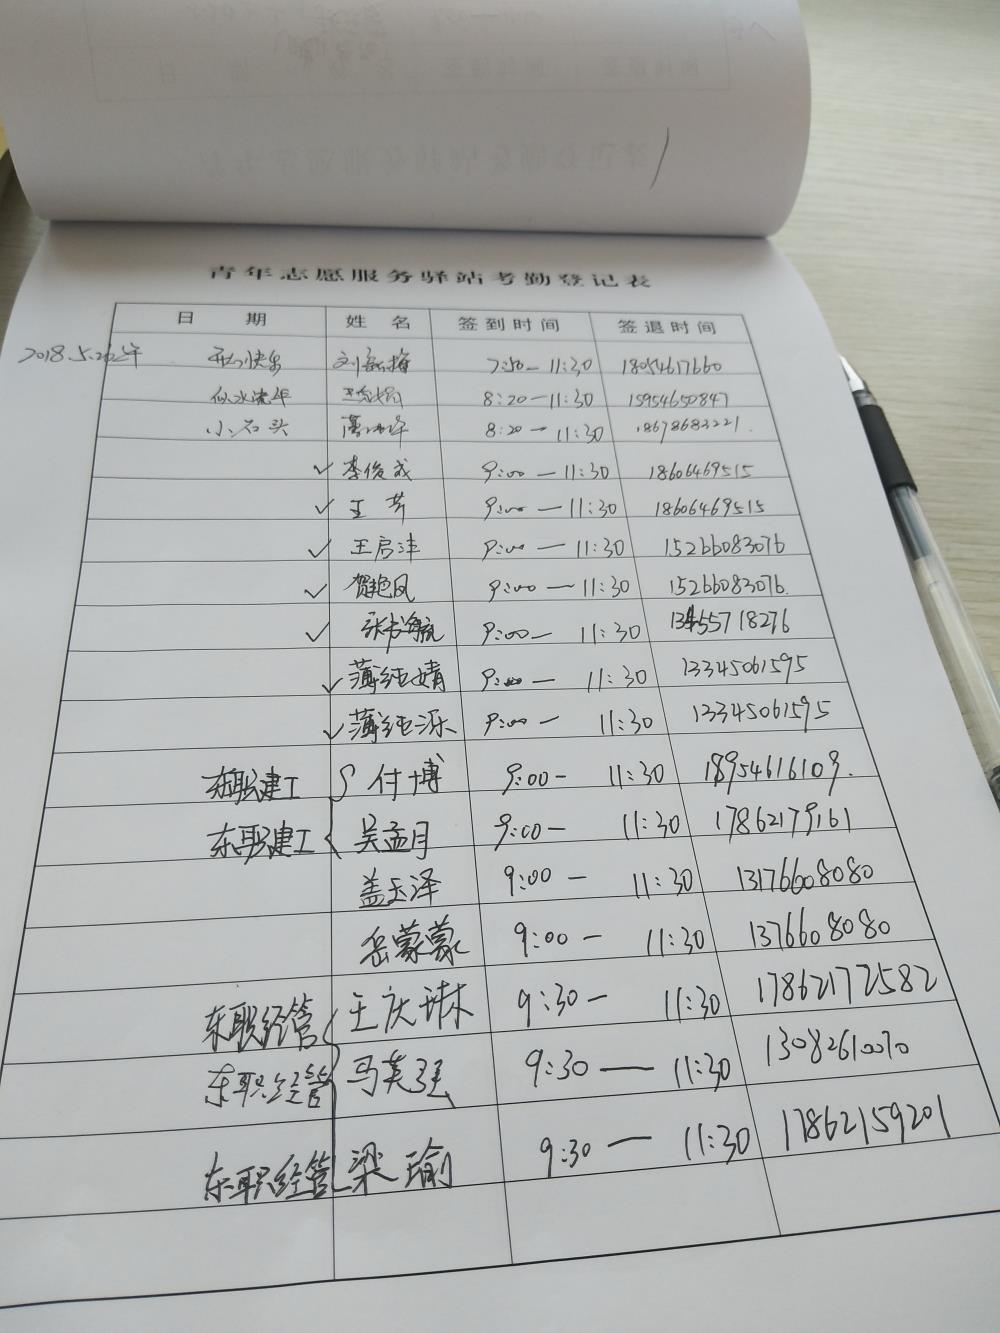 青年志愿服务驿站考勤登记表
日 期 姓 名 签到时间 签退时间
2018.5.26 快乐 7:50-11:30 18054617660
似水流年 8:20-11:30 15954650847
小石头 8:20-11:30 18678683221
✓李俊成 9:00-11:30 18606469515
✓王芳 9:00-11:30 18606469515
✓王启沣 9:00-11:30 15266083076
✓贺艳凤 9:00-11:30 15266083076.
✓张书毓 9:00- 11:30 13455718276
✓薄纯婧 9:00- 11:30 13345061595
✓薄纯源 9:00- 11:30 13345061595
东职建工 付博 9:00- 11:30 18954616109.
东职建工 吴孟月 9:00- 11:30 17862179161
盖玉泽 9:00- 11:30 13176608080
岳蒙蒙 9:00- 11:30 1376608080
东职经管 王庆琳 9:30- 11:30 17862172582
东职经管 马英强 9:30-11:30 13082610070
东职经管 梁瑜 9:30-11:30 17862159201